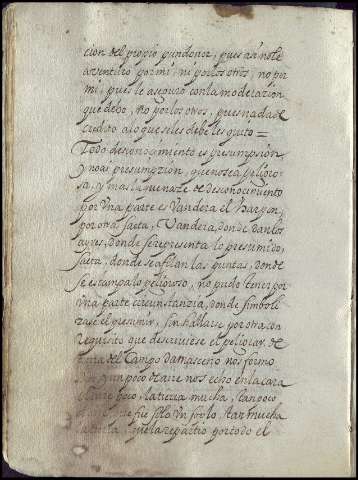 cion del propio pundonor, pues asi no le
aventuro por mi, ni por los otros, no por
mi, pues le aseguro con la moderazion
que debo, no por los otros, pues nada de
credito a lo que seles debe les quito =
Todo desconocimiento es presumpsion,
y no ai presumpzion, que no sea peligro-
sa, y mas la que naze de desconocimiento
por vna parte es Vandera el harpon,
por otra saeta, Vandera, donde dan los
ayres, donde se representa lo presumido,
saeta, donde se afilan las puntas, donde
se estampa lo peligroso, no pudo tener por
vna parte circunstanzia, donde simboli
zase el presumir, sin hallarse por otra con
requisito que descriuiese el peligrar. de
tierra del Campo damasceno nos formo
un poco de aire nos echo en la cara
poco, la tierra mucha, tan poco
que fue solo vn soplo, tan mucha
la tierra, que la repartio por todo el